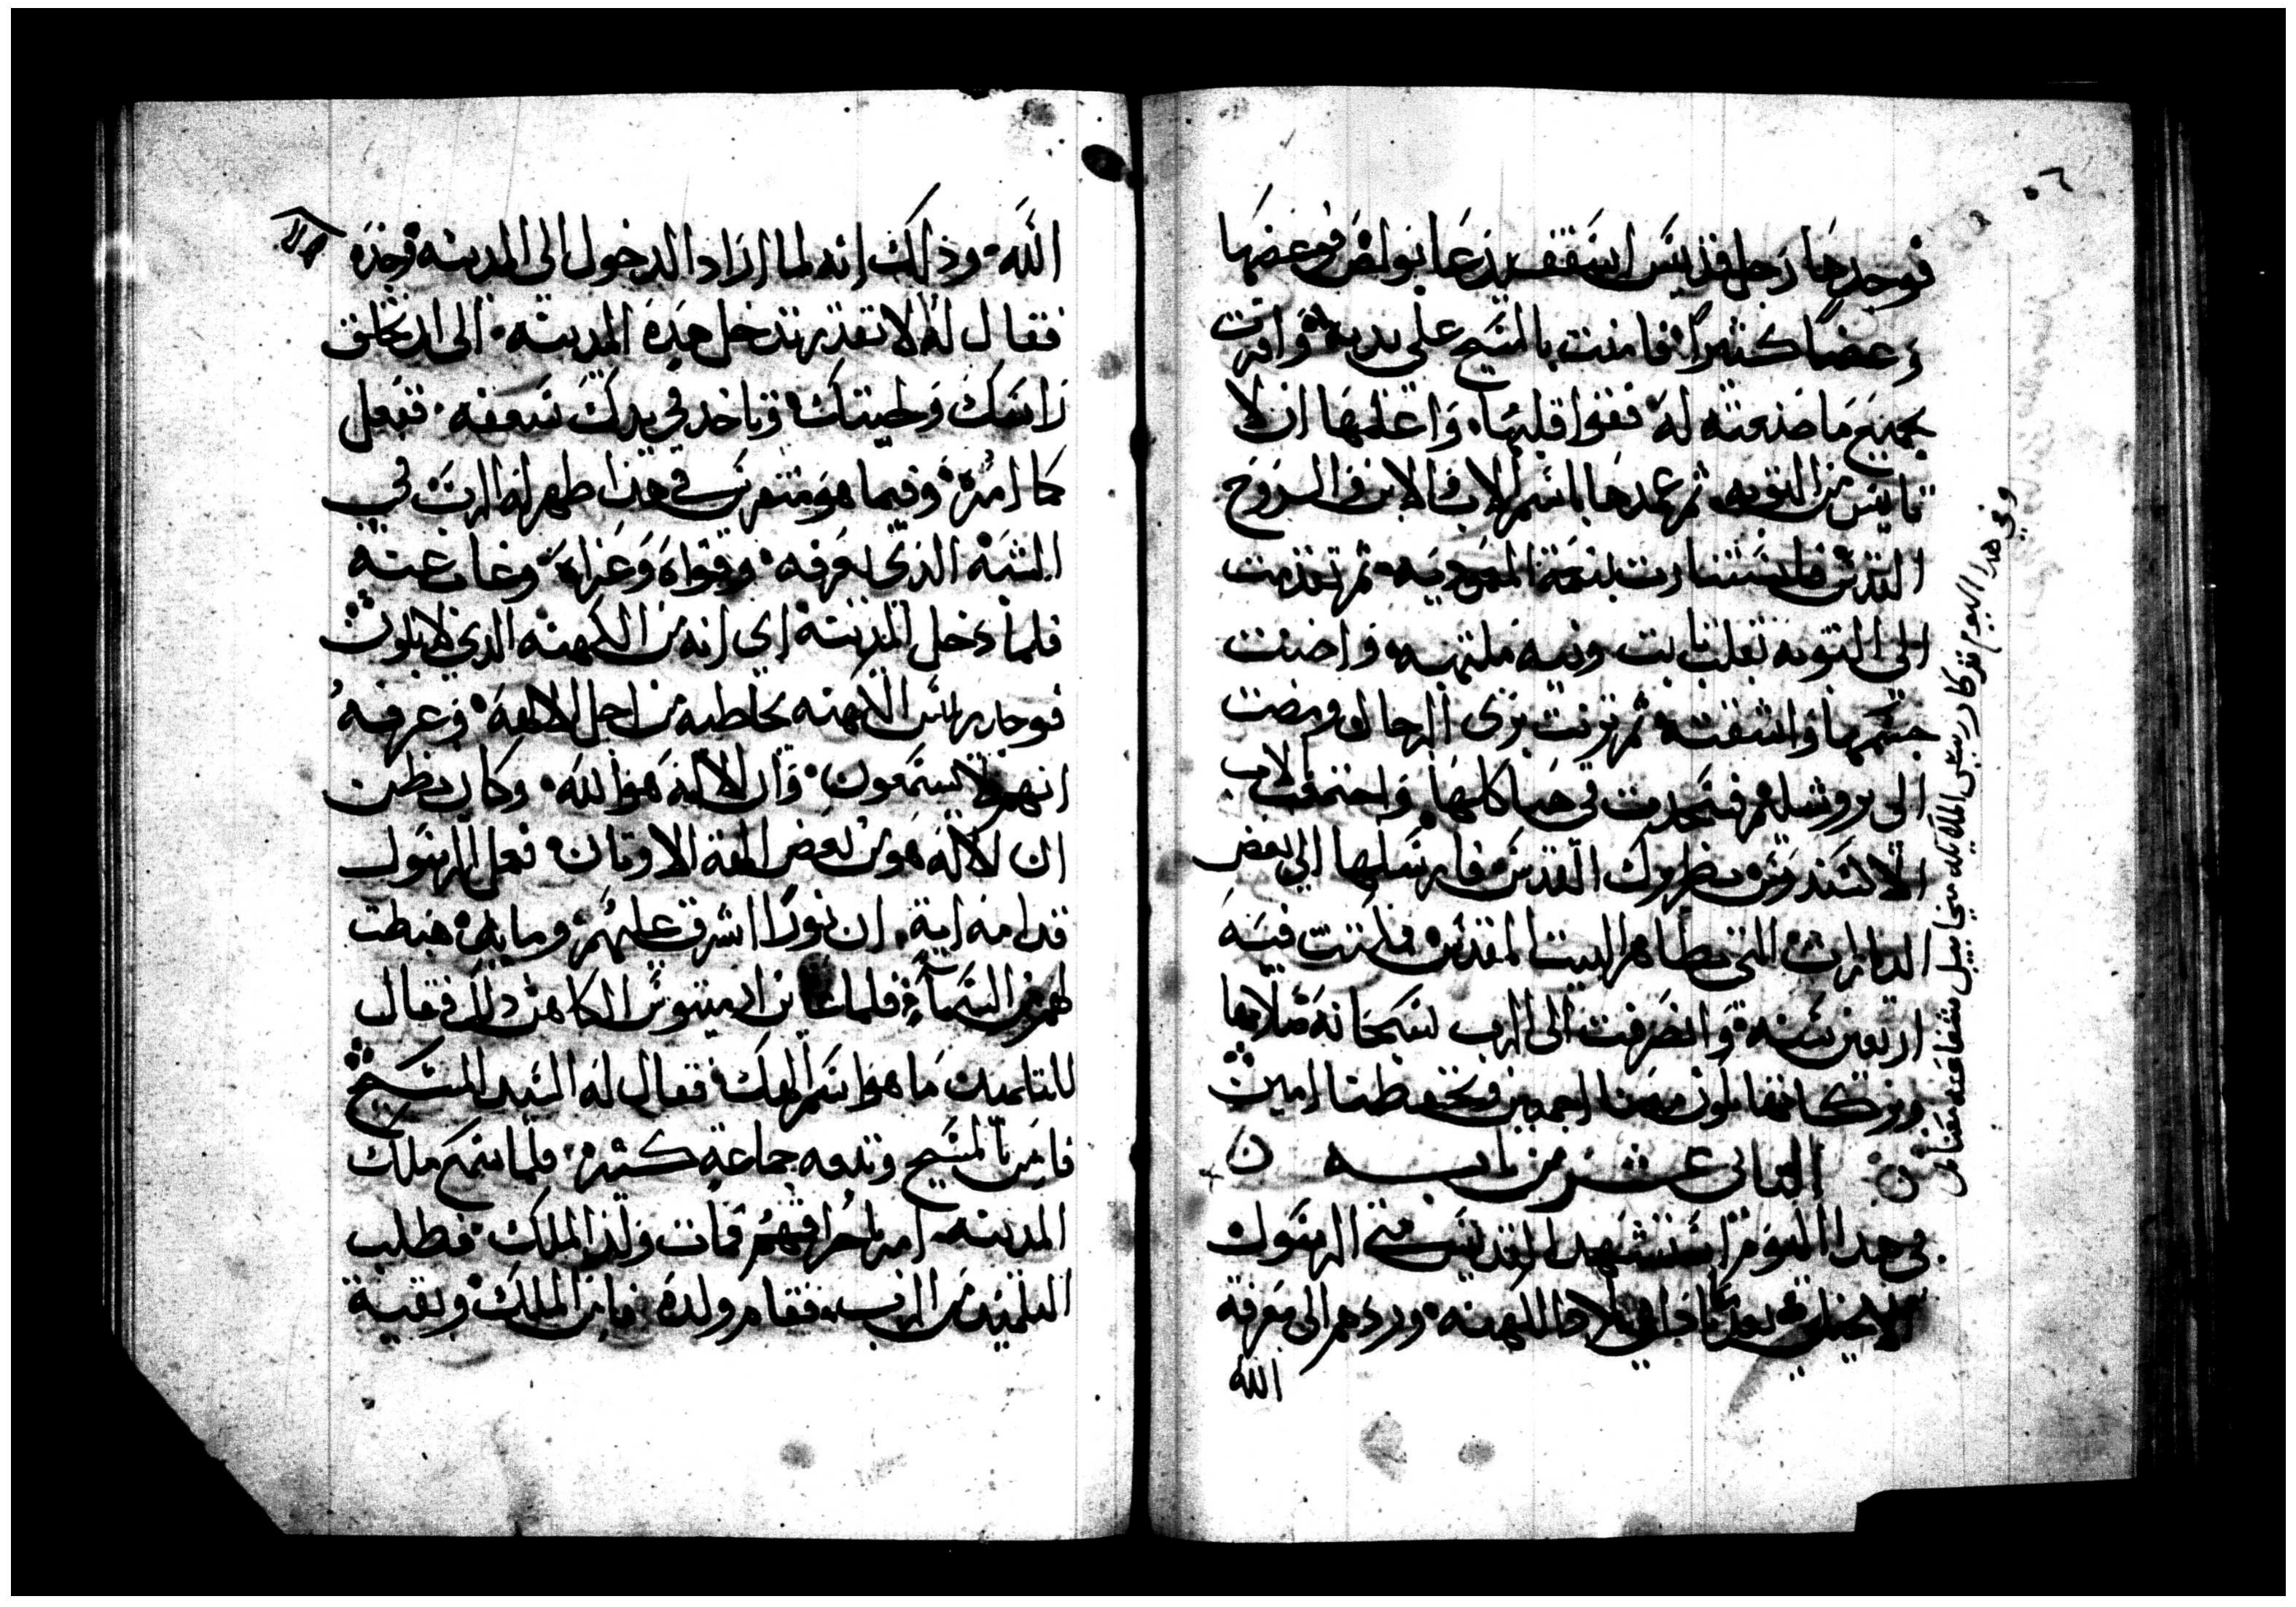 فوجدها رجل قديس اسقف يدعا بولص فوعضها
وعضا كثيرا فامنت بالمسيح على يديه واقرت
بجميع ما صنعته له فقوا قلبها واعلمها ان لا
تايس من التوبه ثم عمدها باسم الاب والابن والروح
القدس فاستنارت بنعمة المعموديه ثم تقدمت
الى التوبه بقلب ثابت ونيه ملتهبه واضنت
جسمها وانشفته ثم تزينت بزى الرجال ومضت
الى يروشليم فسجدت في هياكلها واجتمعت بالاب
الاكسندروس بطريرك القدس فارسلها الى بعض
الديارات التى بظاهر البيت المقدس فاقامت فيه
اربعين سنه وانصرفت الى الرب لسبحانه صلاتها
وبركاتها تكون معنا اجمعين وتحفظنا امين
الثانى عشر من بابه
فى هذا اليوم استشهد القديس متى الرسول
الانجيلي بعد ما مضى الى بلاد الكهنه وردهم الى معرفة
الله
وفي هذا اليوم تذكار رييس الملايكه ميخاييل شفاعته معنا امين
٥٦
الله وذلك انه لما اراد الدخول الى المدينه وجده
فقال له لا تقدر تدخل هذه المدينه الى ان تحلق
راسك ولحيتك وتاخد في يدك سعفه ففعل
كما امره وفيما هو متفرس في هذا ظهر له الرب في
الشبه الذي يعرفه وقواه وعزاه وغاب عنه
فلما دخل المدينه اي انه من الكهنه الذي لابلون
فوجد ريس الكهنه يخاطبه من اجل الالهة وعرفه
انهم لا يسمعون وان الاله هو الله وكان يظن
ان الاله هو من بعض الهة الاوتان فعمل الرسول
قدامه اية ان نورا اشرق عليهم ومايده هبطت
لهم من السماء فلما عاين ارميوس الكاهن ذلك فقال
للتلميد ما هو اسم الهك فقال له السيد المسيح
فامن بالمسيح وتبعه جماعة كتيره فلما سمع ملك
المدينه امر باحراقهم فمات ولد الملك فطلب
التلميد من الرب فقام ولده فامن الملك وبقية